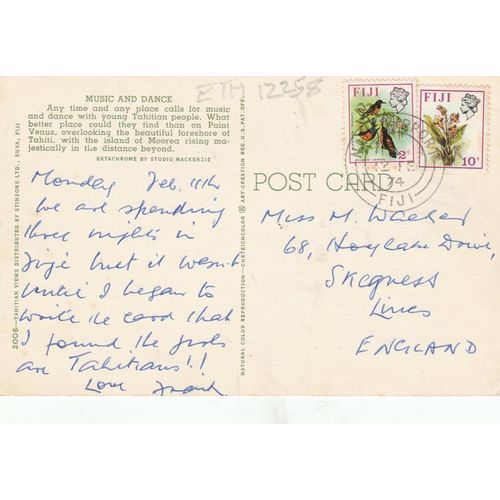 ETH 12258
MUSIC AND DANCE
Any time and any place calls for music
and dance with young Tahitian people. What
better place could they find than on Point
Venus, overlooking the beautiful foreshore of
Tahiti, with the island of Moorea rising ma-
jestically in the distance beyond.
EKTACHROME BY STUDIO MACKENZIE
Monday Feb. 11th
We are spending
three nights in
Fiji but it wasn't
until I began to
write the card that
I found the girls
are Tahitians!!
Love Frank
2006—TAHITIAN VIEWS DISTRIBUTED BY STINSONS LTD., SUVA, FIJI
NATURAL COLOR REPRODUCTION—CURTEICHCOLOR ® ART-CREATION REG. U.S. PAT. OFF.
POST CARD
FIJI
2c
FIJI
10c
74
FIJI
Miss M. Walker
68, Hoylake Drive,
Skegness
Lincs
ENGLAND